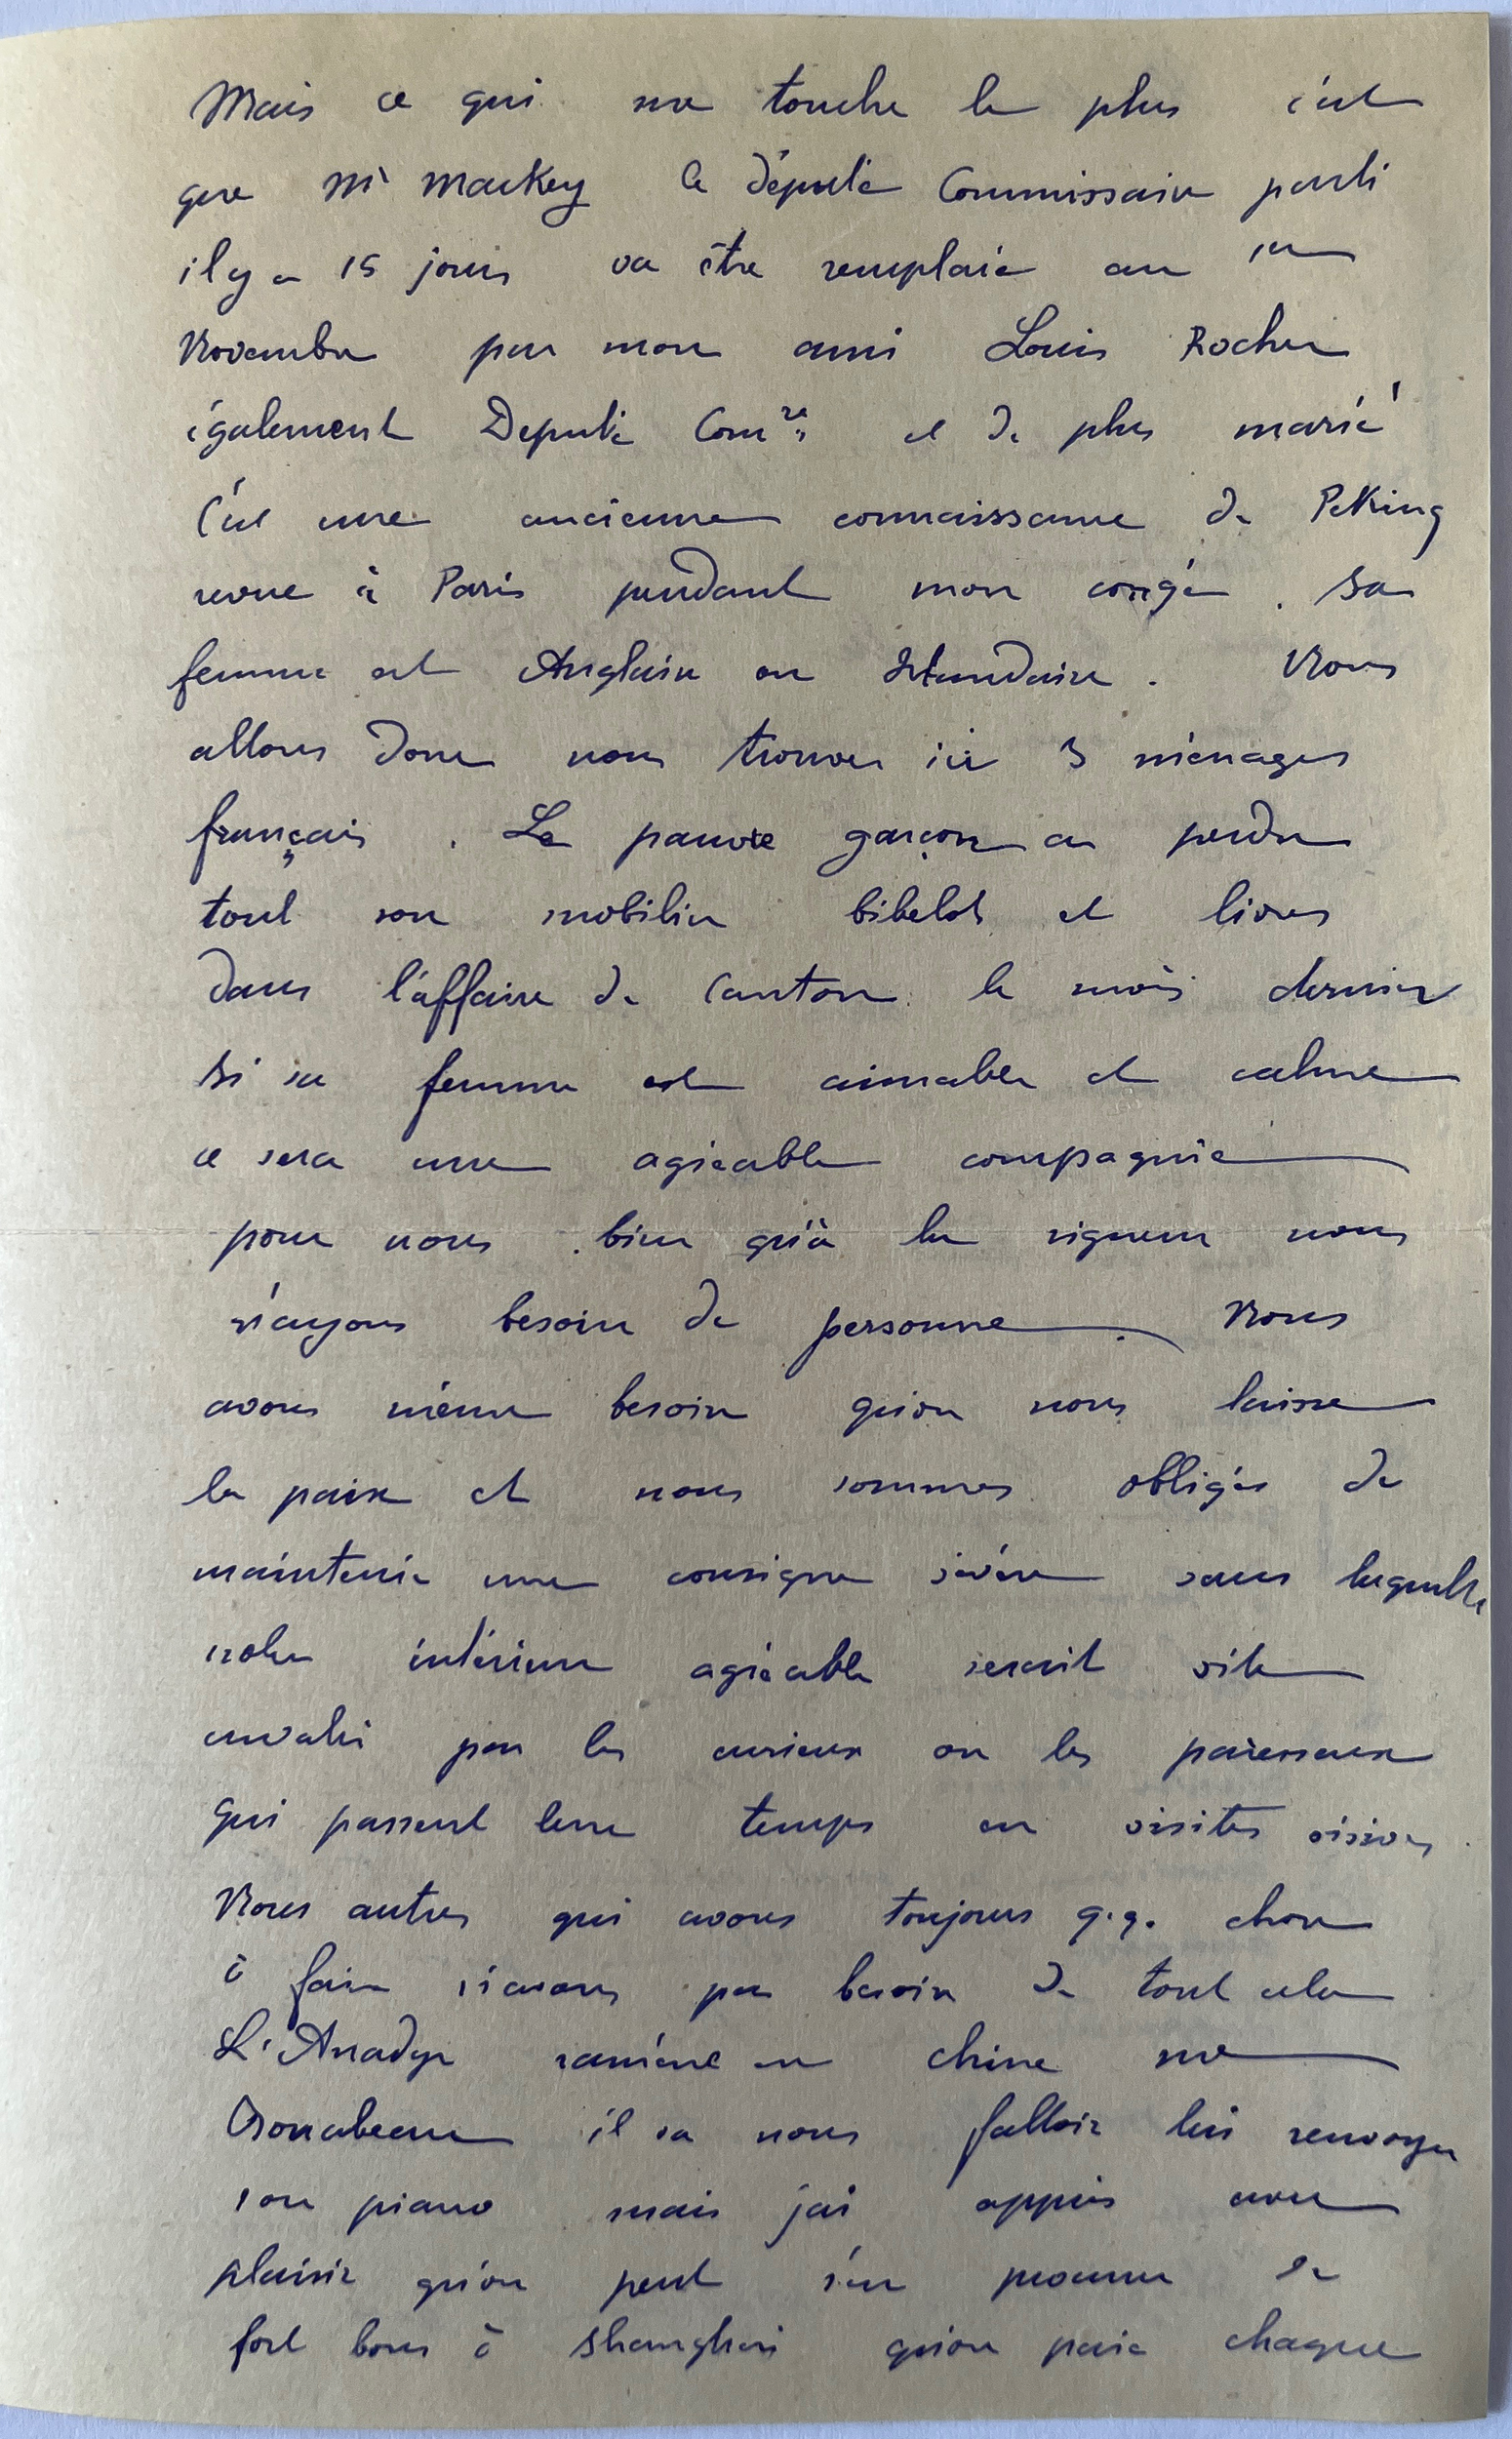 Mais ce qui me touche le plus c'est
que Mr Mackey le député Commissaire parti
il y a 15 jours va être remplacé au 1er
Novembre par mon ami Louis Rocher
également Député Comre et de plus marié
C'est une ancienne connaissance de PeKing
revue à Paris pendant mon congé. Sa
femme est Anglaise ou Irlandaise. Nous
allons donc nous trouver ici 3 ménages
français. Le pauvre garçon a perdu
tout son mobilier bibelots et livres
dans l'affaire de Canton le mois dernier
Si sa femme est aimable et calme
ce sera une agréable compagnie
pour nous. bien qu'à la rigueur nous
n'ayons besoin de personne. Nous
avons même besoin qu'on nous laisse
la paix et nous sommes obligés de
maintenir une consigne sévère sans laquelle
notre intérieur agréable serait vite
envahi par les curieux ou les paresseux
qui passent leur temps en visites oisives.
Nous autres qui avons toujours q.q. chose
à faire n'avons pas besoin de tout cela
L'Anadyr ramène en Chine me
il va nous falloir lui renvoyer
son piano mais j'ai appris avec
plaisir qu'on peut s'en procurer de
fort bons à Shanghai qu'on paie chaque